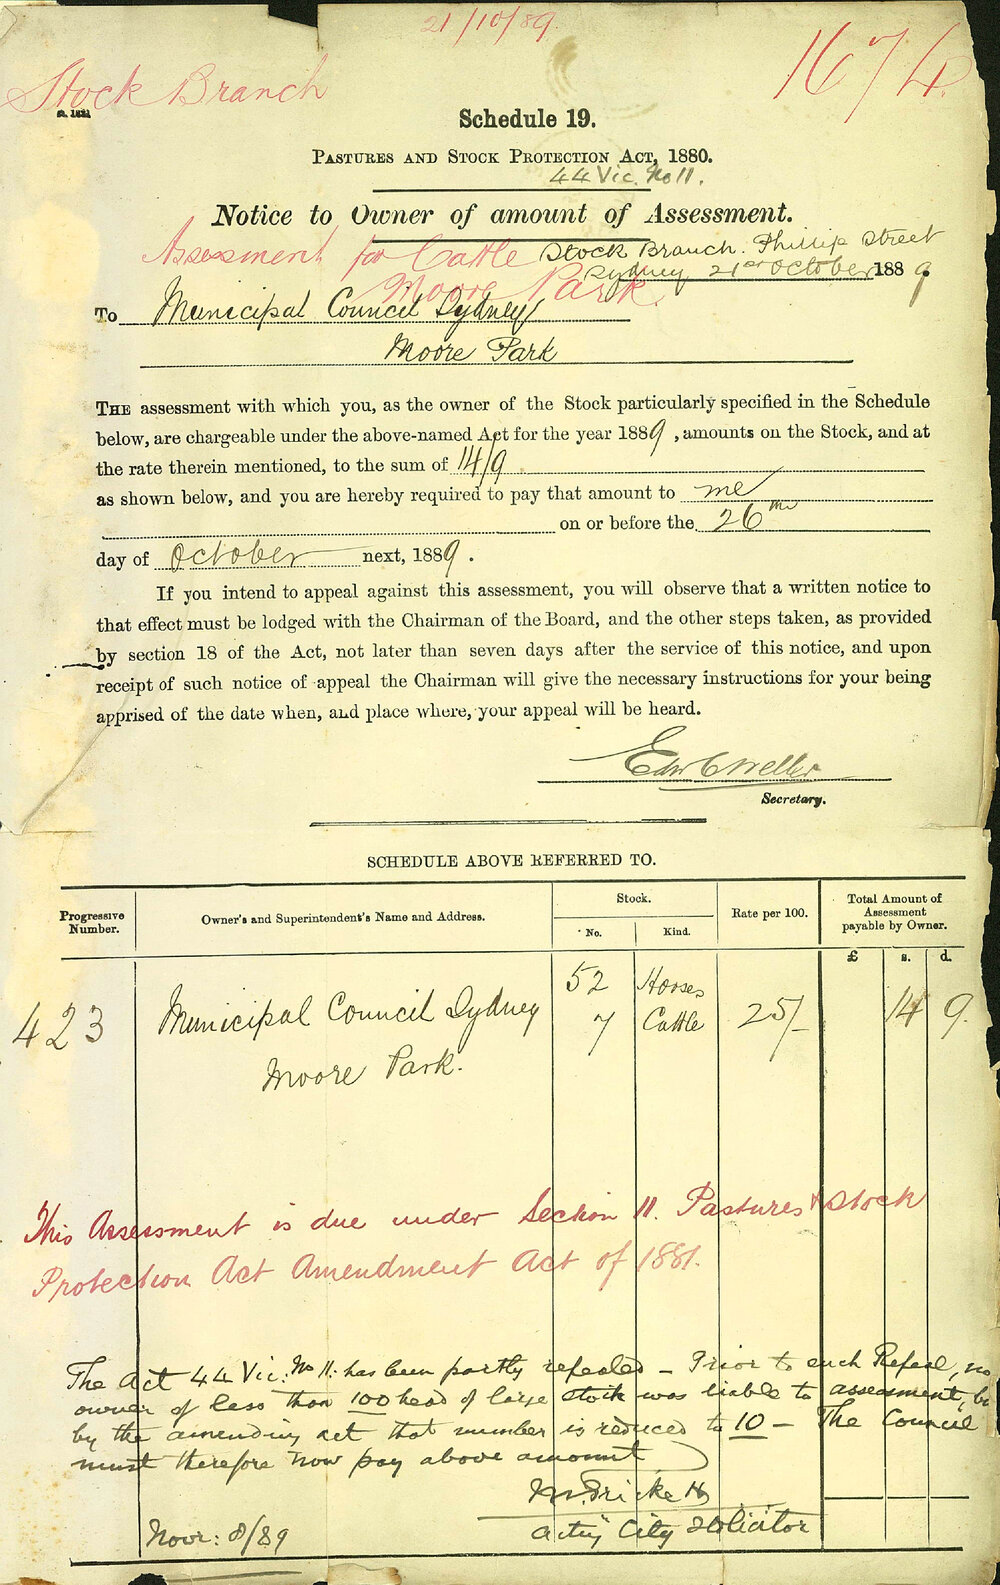 21/10/89
Stock Branch
1674
Schedule 19.
PASTURES AND STOCK PROTECTION ACT, 1880.
44 Vic. No 11.
Notice to Owner of amount of Assessment.
Assessment for Cattle
Moore Park.
Stock Branch. Phillip Street
Sydney 21st October 1889
To Municipal Council Sydney
Moore Park
THE assessment with which you, as the owner of the Stock particularly specified in the Schedule
below, are chargeable under the above-named Act for the year 1889, amounts on the Stock, and at
the rate therein mentioned, to the sum of 14/9
as shown below, and you are hereby required to pay that amount to me
on or before the 26th
day of October next, 1889.
If you intend to appeal against this assessment, you will observe that a written notice to
that effect must be lodged with the Chairman of the Board, and the other steps taken, as provided
by section 18 of the Act, not later than seven days after the service of this notice, and upon
receipt of such notice of appeal the Chairman will give the necessary instructions for your being
apprised of the date when, and place where, your appeal will be heard.
Secretary.
SCHEDULE ABOVE REFERRED TO.
Progressive Number.
Owner's and Superintendent's Name and Address.
Stock.
No.
Kind.
Rate per 100.
Total Amount of Assessment payable by Owner.
£ s. d.
423
Municipal Council Sydney
Moore Park.
52 Horses
7 Cattle
25/-
14 9.
This Assessment is due under Section 11. Pastures & Stock
Protection Act Amendment Act of 1881.
The Act 44 Vic: No 11: has been partly repealed – Prior to such Repeal, no
owner of less than 100 head of large stock was liable to assessment, but
by the amending act that number is reduced to 10 – The Council
must therefore now pay above amount
Acting City Solicitor
Novr: 8/89